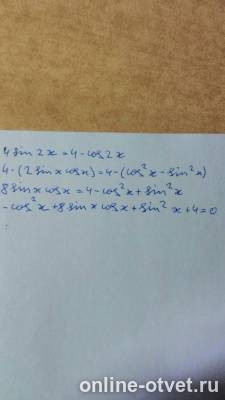 4 sin 2x = 4 - cos 2x
4 · (2 sin x cos x) = 4 - (cos² x - sin² x)
8 sin x cos x = 4 - cos² x + sin² x
- cos² x + 8 sin x cos x + sin² x + 4 = 0
online-otvet.ru